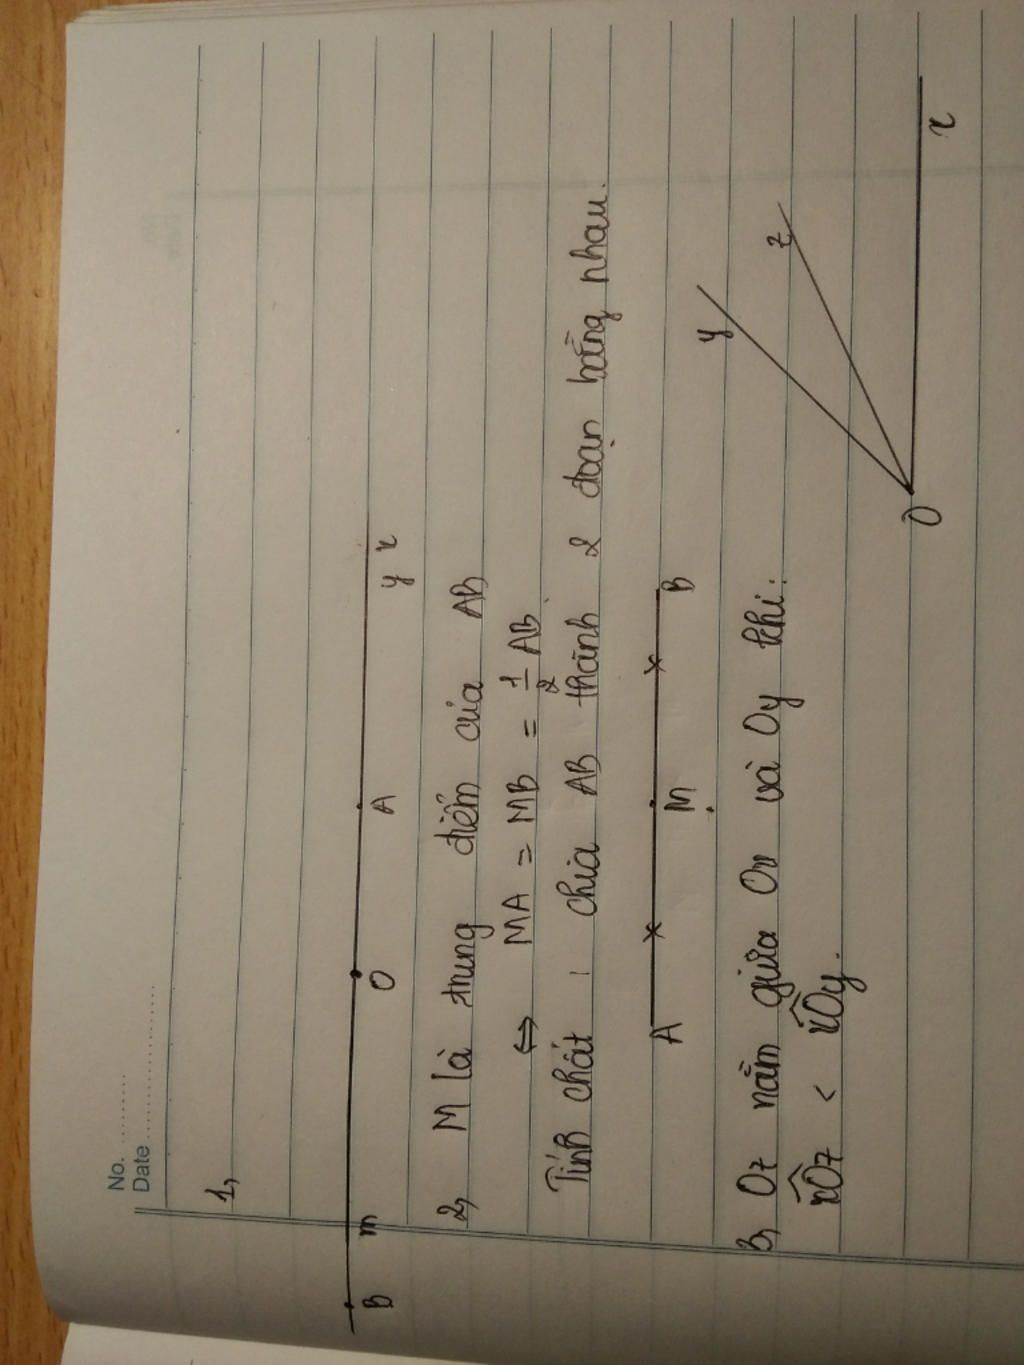 No. ..........
Date ....................
1,
B m O A y x
2, M là trung điểm của AB
⇔ MA = MB = 1/2 AB
Tính chất : chia AB thành 2 đoạn bằng nhau.
A M B
y
z
O
x
3, Oz nằm giữa Ox và Oy khi:
x̂Oz < x̂Oy.